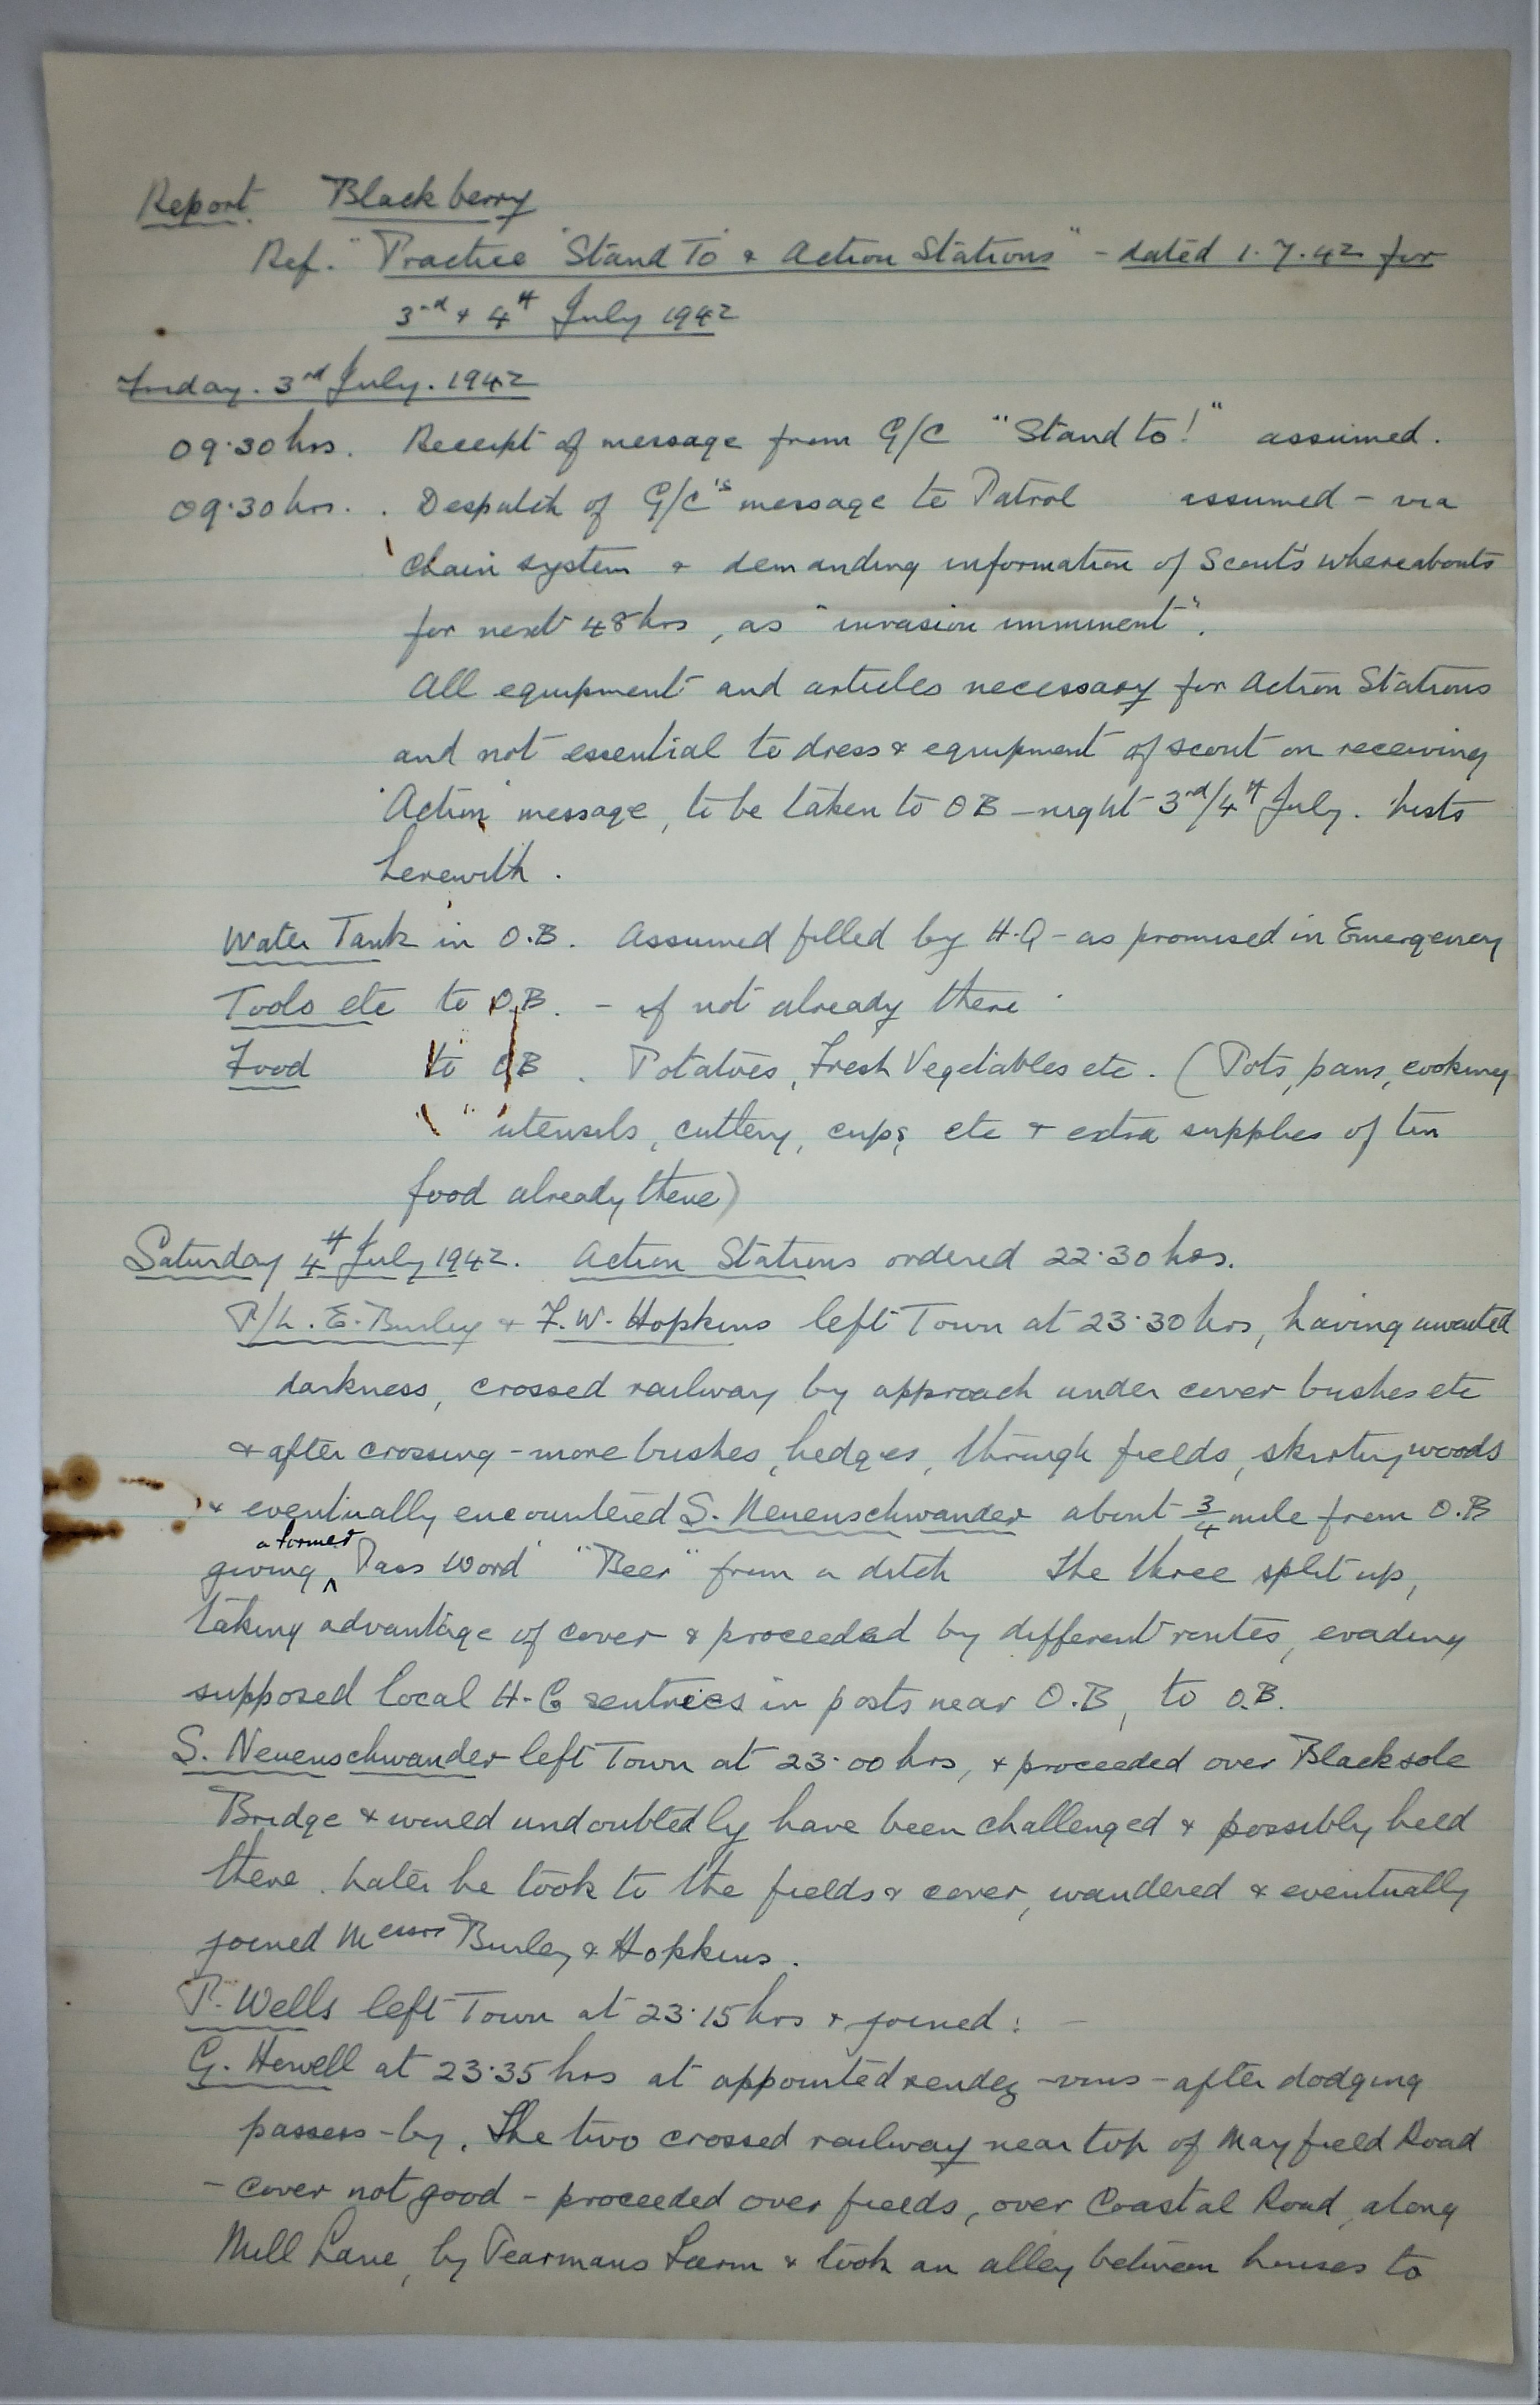 Report. Blackberry
Ref. "Practice 'Stand To' & Action Stations" - dated 1.7.42 for
3rd & 4th July 1942
Friday. 3rd July. 1942
09.30 hrs. Receipt of message from G/C "Stand to!" assumed.
09.30 hrs. . Despatch of G/C's message to Patrol assumed - via
chain system & demanding information of Scouts whereabouts
for next 48 hrs, as "invasion imminent".
All equipment and articles necessary for Action Stations
and not essential to dress & equipment of scout on receiving
'Action' message, to be taken to OB - night 3rd/4th July. Lists
herewith.
Water Tank in O.B. Assumed filled by H.Q - as promised in Emergency
Tools etc to O.B. - if not already there.
Food to OB. Potatoes, Fresh Vegetables etc. (Pots, pans, cooking
utensils, cutlery, cups, etc & extra supplies of tin
food already there)
Saturday 4th July 1942. Action Stations ordered 22.30 hrs.
P/L. E. Burley & F.W. Hopkins left Town at 23.30 hrs, having awaited
darkness, crossed railway by approach under cover bushes etc
& after crossing - more bushes, hedges, through fields, skirting woods
& eventually encountered S. Neuenschwander about 3/4 mile from O.B
giving a former Pass Word "Beer" from a ditch The three split up,
taking advantage of cover & proceeded by different routes, evading
supposed local H.G sentries in posts near O.B, to O.B.
S. Neuenschwander left Town at 23.00 hrs, & proceeded over Blacksole
Bridge & would undoubtedly have been challenged & possibly held
there. Later he took to the fields & cover, wandered & eventually
joined Messrs Burley & Hopkins.
P. Wells left Town at 23.15 hrs & joined: -
G. Hewell at 23.35 hrs at appointed rendez-vous - after dodging
passers-by. The two crossed railway near top of Mayfield Road
- cover not good - proceeded over fields, over Coastal Road, along
Mill Lane, by Pearmans Farm & took an alley between houses to